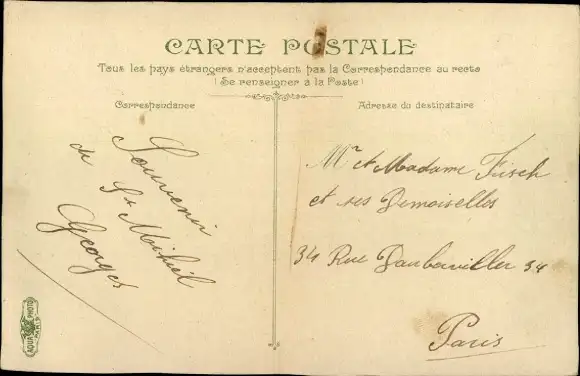 CARTE POSTALE
Tous les pays étrangers n'acceptent pas la Correspondance au recto
(Se renseigner à la Poste)
Correspondance
Adresse du destinataire
Souvenir
de St Mihiel
Georges
Mr et Madame Frisch
et ses Demoiselles
34 Rue Daubervillier 34
Paris
AQUA PHOTO
PARIS